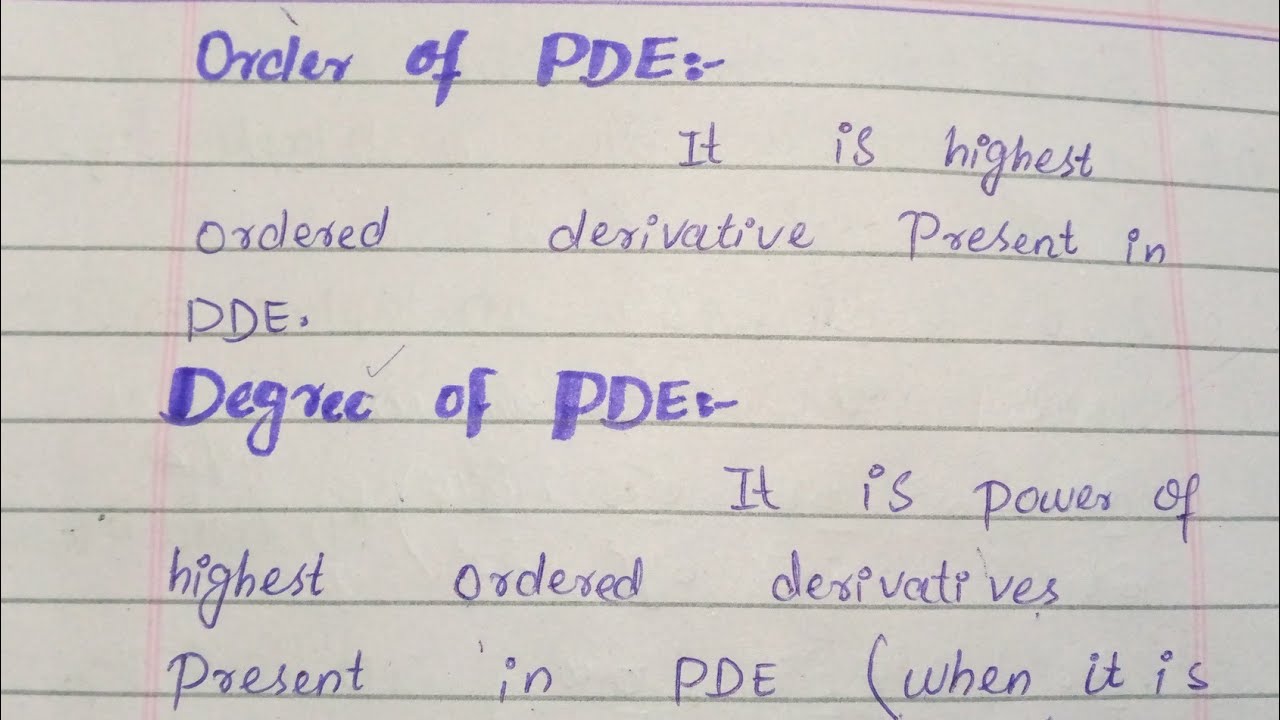 Order of PDE:-
It is highest
ordered derivative Present in
PDE.
Degree of PDE:-
It is power of
highest ordered derivatives
Present in PDE (when it is